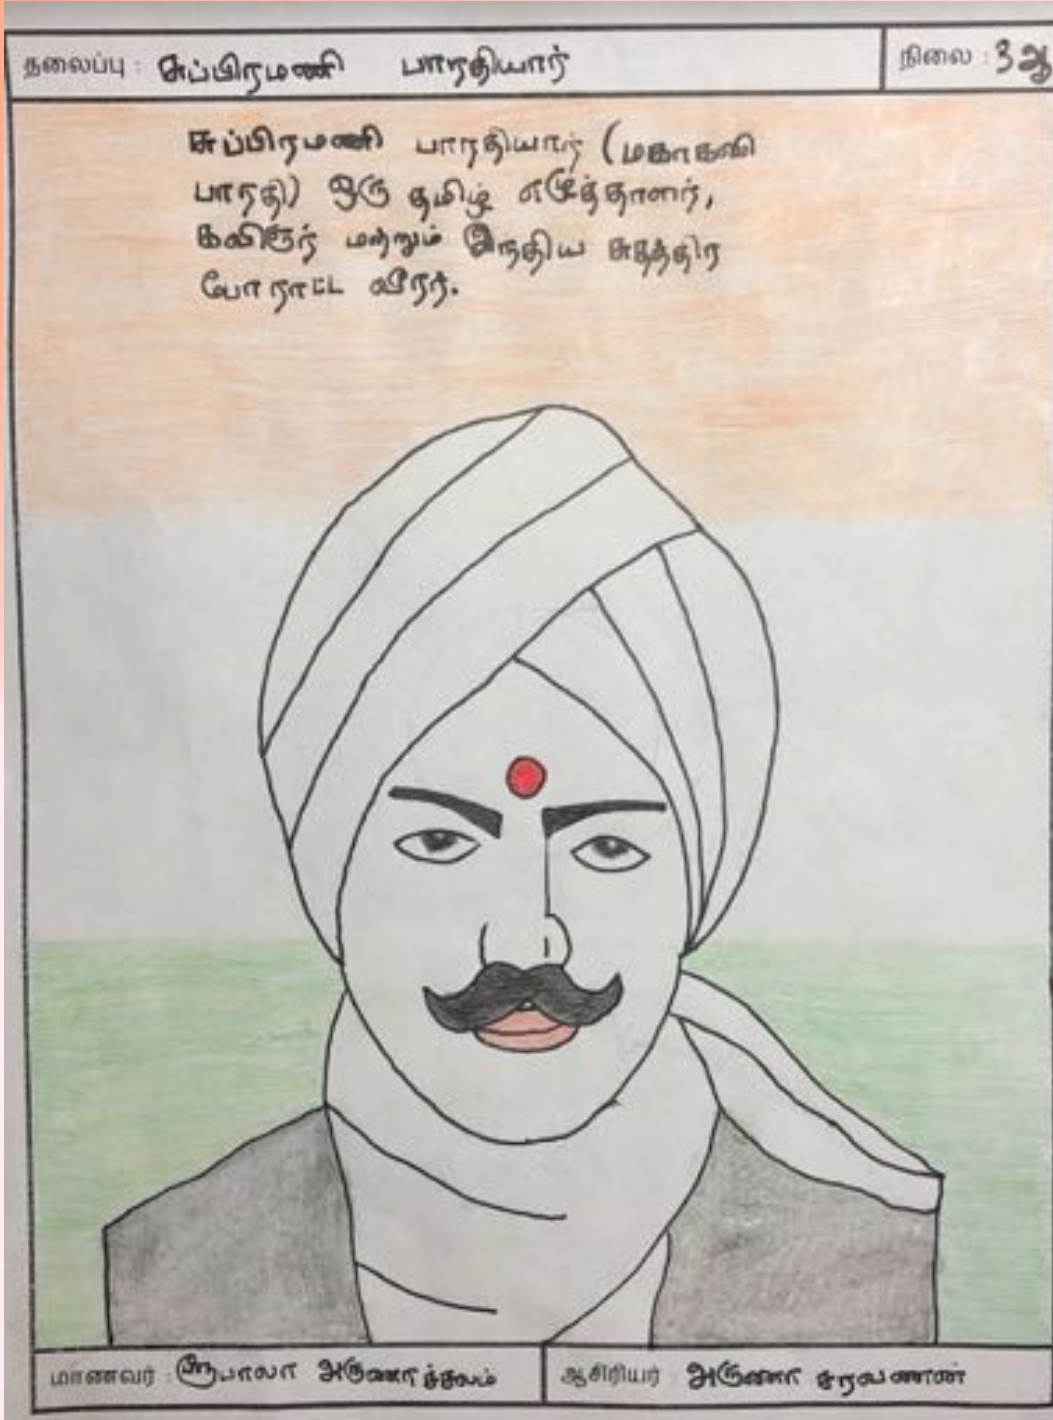 தலைப்பு : சுப்பிரமணி பாரதியார் நிலை : 3ஆ
சுப்பிரமணி பாரதியார் (மகாகவி
பாரதி) ஒரு தமிழ் எழுத்தாளர்,
கவிஞர் மற்றும் இந்திய சுதந்திர
போராட்ட வீரர்.
மாணவர் : ஸ்ரீபாலா அருணாச்சலம் ஆசிரியர் : அருணா சரவணன்